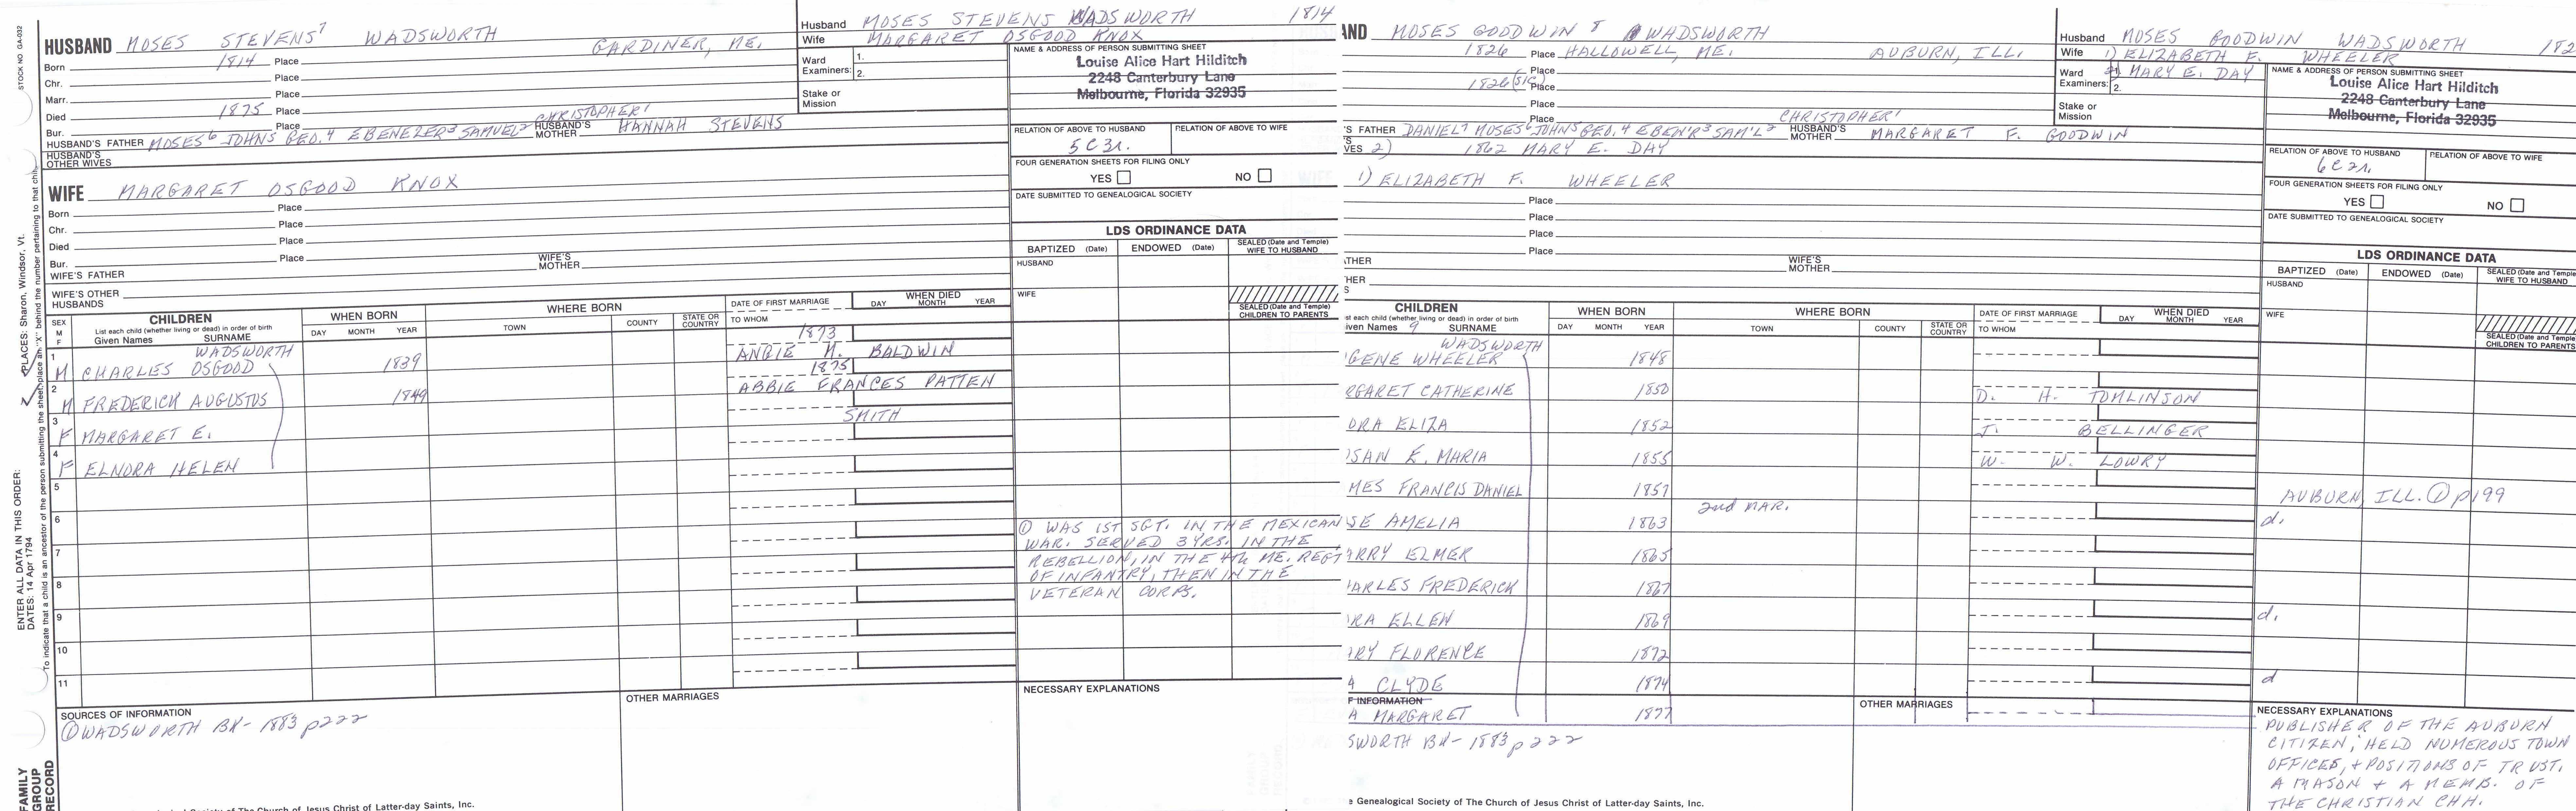 STOCK NO. GA-032
HUSBAND MOSES STEVENS⁷ WADSWORTH
GARDINER, ME.
Born 1814 Place
Chr. Place
Marr. Place
Died 1875 Place
Bur. Place
CHRISTOPHER¹
HUSBAND'S FATHER MOSES⁶ JOHN⁵ GEO.⁴ EBENEZER³ SAMUEL² HUSBAND'S MOTHER HANNAH STEVENS
HUSBAND'S OTHER WIVES
WIFE MARGARET OSGOOD KNOX
Born Place
Chr. Place
Died Place
Bur. Place
WIFE'S FATHER WIFE'S MOTHER
WIFE'S OTHER HUSBANDS
Husband MOSES STEVENS WADSWORTH 1814
Wife MARGARET OSGOOD KNOX
Ward Examiners: 1. 2.
Stake or Mission
NAME & ADDRESS OF PERSON SUBMITTING SHEET
Louise Alice Hart Hilditch
2248 Canterbury Lane
Melbourne, Florida 32935
RELATION OF ABOVE TO HUSBAND RELATION OF ABOVE TO WIFE
5C3r.
FOUR GENERATION SHEETS FOR FILING ONLY
YES NO
DATE SUBMITTED TO GENEALOGICAL SOCIETY
LDS ORDINANCE DATA
BAPTIZED (Date) ENDOWED (Date) SEALED (Date and Temple) WIFE TO HUSBAND
HUSBAND
WIFE
SEALED (Date and Temple) CHILDREN TO PARENTS
SEX M F
CHILDREN
List each child (whether living or dead) in order of birth
Given Names SURNAME
WHEN BORN
DAY MONTH YEAR
WHERE BORN
TOWN COUNTY STATE OR COUNTRY
DATE OF FIRST MARRIAGE
TO WHOM
WHEN DIED
DAY MONTH YEAR
WADSWORTH
1873
1 M CHARLES OSGOOD 1839 ANGIE M. BALDWIN
1875
2 M FREDERICK AUGUSTUS 1849 ABBIE FRANCES PATTEN
3 F MARGARET E. SMITH
4 F ELNORA HELEN
5
6
7
8
9
10
11
① WAS 1ST SGT. IN THE MEXICAN
WAR. SERVED 3 YRS. IN THE
REBELLION, IN THE 4th ME. REGT
OF INFANTRY, THEN IN THE
VETERAN CORPS.
SOURCES OF INFORMATION
① WADSWORTH BK- 1883 p222
OTHER MARRIAGES
NECESSARY EXPLANATIONS
Society of The Church of Jesus Christ of Latter-day Saints, Inc.
ENTER ALL DATA IN THIS ORDER:
DATES: 14 Apr 1794
PLACES: Sharon, Windsor, Vt.
To indicate that a child is an ancestor of the person submitting the sheet, place an "X" behind the number pertaining to that child.
FAMILY GROUP RECORD
AND MOSES GOODWIN⁸ WADSWORTH
1826 Place HALLOWELL, ME. AUBURN, ILL.
Place
1826 (SIC) Place
Place
CHRISTOPHER¹
'S FATHER DANIEL⁷ MOSES⁶ JOHN⁵ GEO.⁴ EBEN'R³ SAM'L² HUSBAND'S MOTHER MARGARET F. GOODWIN
'S
VES 2) 1862 MARY E. DAY
1) ELIZABETH F. WHEELER
Place
Place
Place
Place
THER WIFE'S MOTHER
HER
S
Husband MOSES GOODWIN WADSWORTH 182
Wife 1) ELIZABETH F. WHEELER
Ward Examiners: 2) MARY E. DAY
2.
Stake or Mission
NAME & ADDRESS OF PERSON SUBMITTING SHEET
Louise Alice Hart Hilditch
2248 Canterbury Lane
Melbourne, Florida 32935
RELATION OF ABOVE TO HUSBAND RELATION OF ABOVE TO WIFE
6C2r.
FOUR GENERATION SHEETS FOR FILING ONLY
YES NO
DATE SUBMITTED TO GENEALOGICAL SOCIETY
LDS ORDINANCE DATA
BAPTIZED (Date) ENDOWED (Date) SEALED (Date and Temple) WIFE TO HUSBAND
HUSBAND
WIFE
SEALED (Date and Temple) CHILDREN TO PARENTS
CHILDREN
st each child (whether living or dead) in order of birth
iven Names 9 SURNAME
WHEN BORN
DAY MONTH YEAR
WHERE BORN
TOWN COUNTY STATE OR COUNTRY
DATE OF FIRST MARRIAGE
TO WHOM
WHEN DIED
DAY MONTH YEAR
WADSWORTH
GENE WHEELER 1848
RGARET CATHERINE 1850 D. H. TOMLINSON
ORA ELIZA 1852 J. BELLINGER
SAN E. MARIA 1855 W. W. LOWRY
MES FRANCIS DANIEL 1857 AUBURN, ILL. ① p199
2nd MAR.
SE AMELIA 1863 d.
ARRY ELMER 1865
ARLES FREDERICK 1867
RA ELLEN 1869 d.
RY FLORENCE 1872
A CLYDE 1874 d
F INFORMATION OTHER MARRIAGES
A MARGARET 1877
SWORTH BK- 1883 p222
NECESSARY EXPLANATIONS
PUBLISHER OF THE AUBURN
CITIZEN; HELD NUMEROUS TOWN
OFFICES, + POSITIONS OF TRUST,
A MASON + A MEMB. OF
THE CHRISTIAN CHH.
e Genealogical Society of The Church of Jesus Christ of Latter-day Saints, Inc.